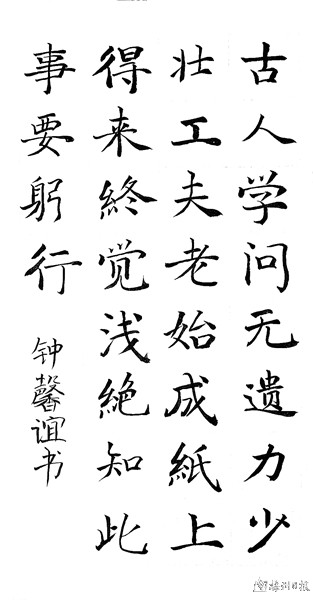 古人学问无遗力少
壮工夫老始成紙上
得来終觉浅絶知此
事要躬行
钟馨谊书
梅州日报